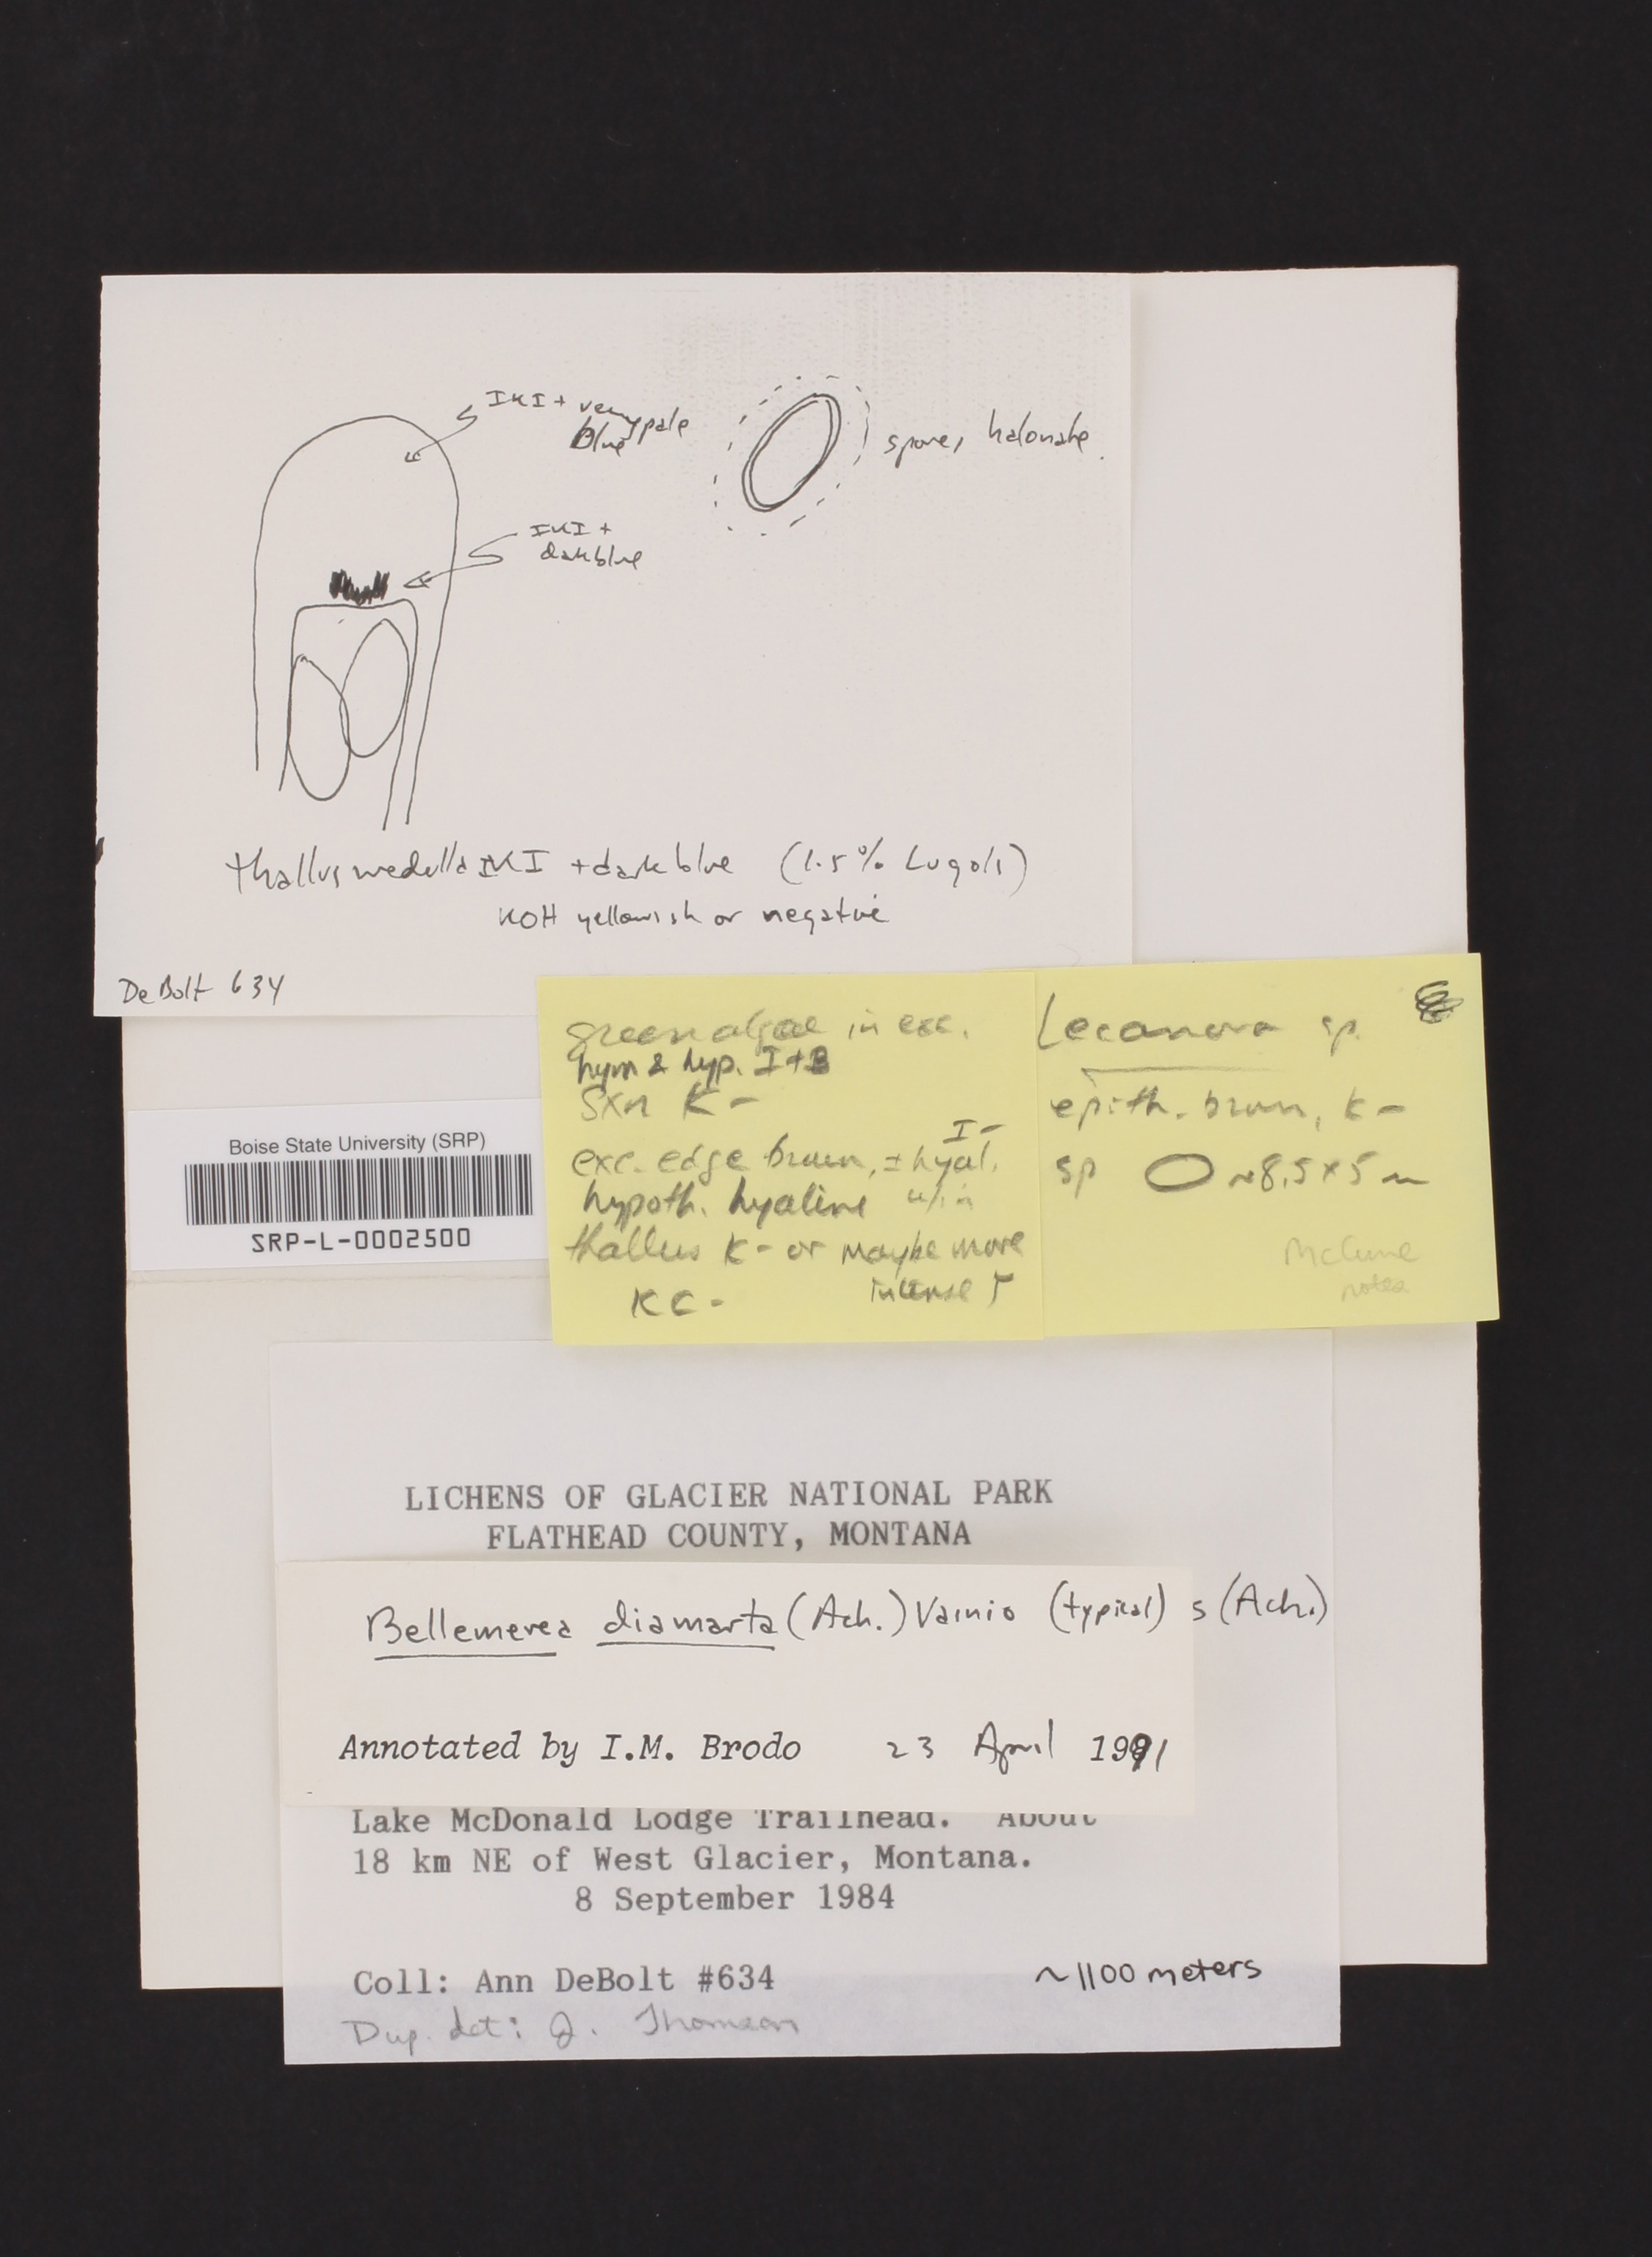 IKI + very pale
blue
spores halonate.
IKI +
dark blue
thallus medulla IKI + dark blue (1.5% Lugols)
KOH yellowish or negative
DeBolt 634
green algae in exc.
hym & hyp. I+B
Sxn K-
I-
exc. edge brown, ± hyal.
hypoth. hyaline w/in
thallus K- or maybe more
intense
KC-
Lecanora sp.
epith. brown, K-
sp ~8.5x5
McCune
notes
Boise State University (SRP)
SRP-L-0002500
LICHENS OF GLACIER NATIONAL PARK
FLATHEAD COUNTY, MONTANA
Bellemerea diamarta (Ach.) Vainio (typical) s (Ach.)
Annotated by I.M. Brodo 23 April 1991
Lake McDonald Lodge Trailhead. About
18 km NE of West Glacier, Montana.
8 September 1984
Coll: Ann DeBolt #634 ~1100 meters
Dup. det: J. Thomson